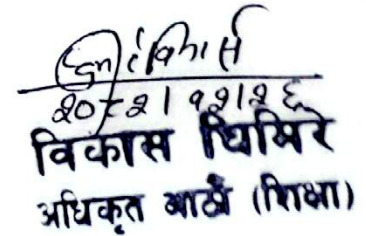 २०८२।१२।२६
विकास घिमिरे
अधिकृत आठौं (शिक्षा)